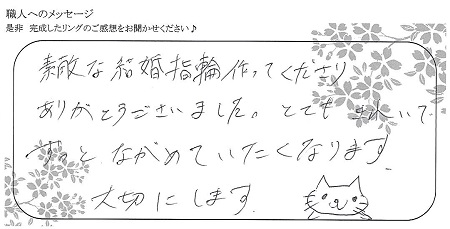 職人へのメッセージ
是非 完成したリングのご感想をお聞かせください♪
素敵な結婚指輪作ってくださり
ありがとうございました。とても きれいで
ずっと ながめていたくなります
大切にします